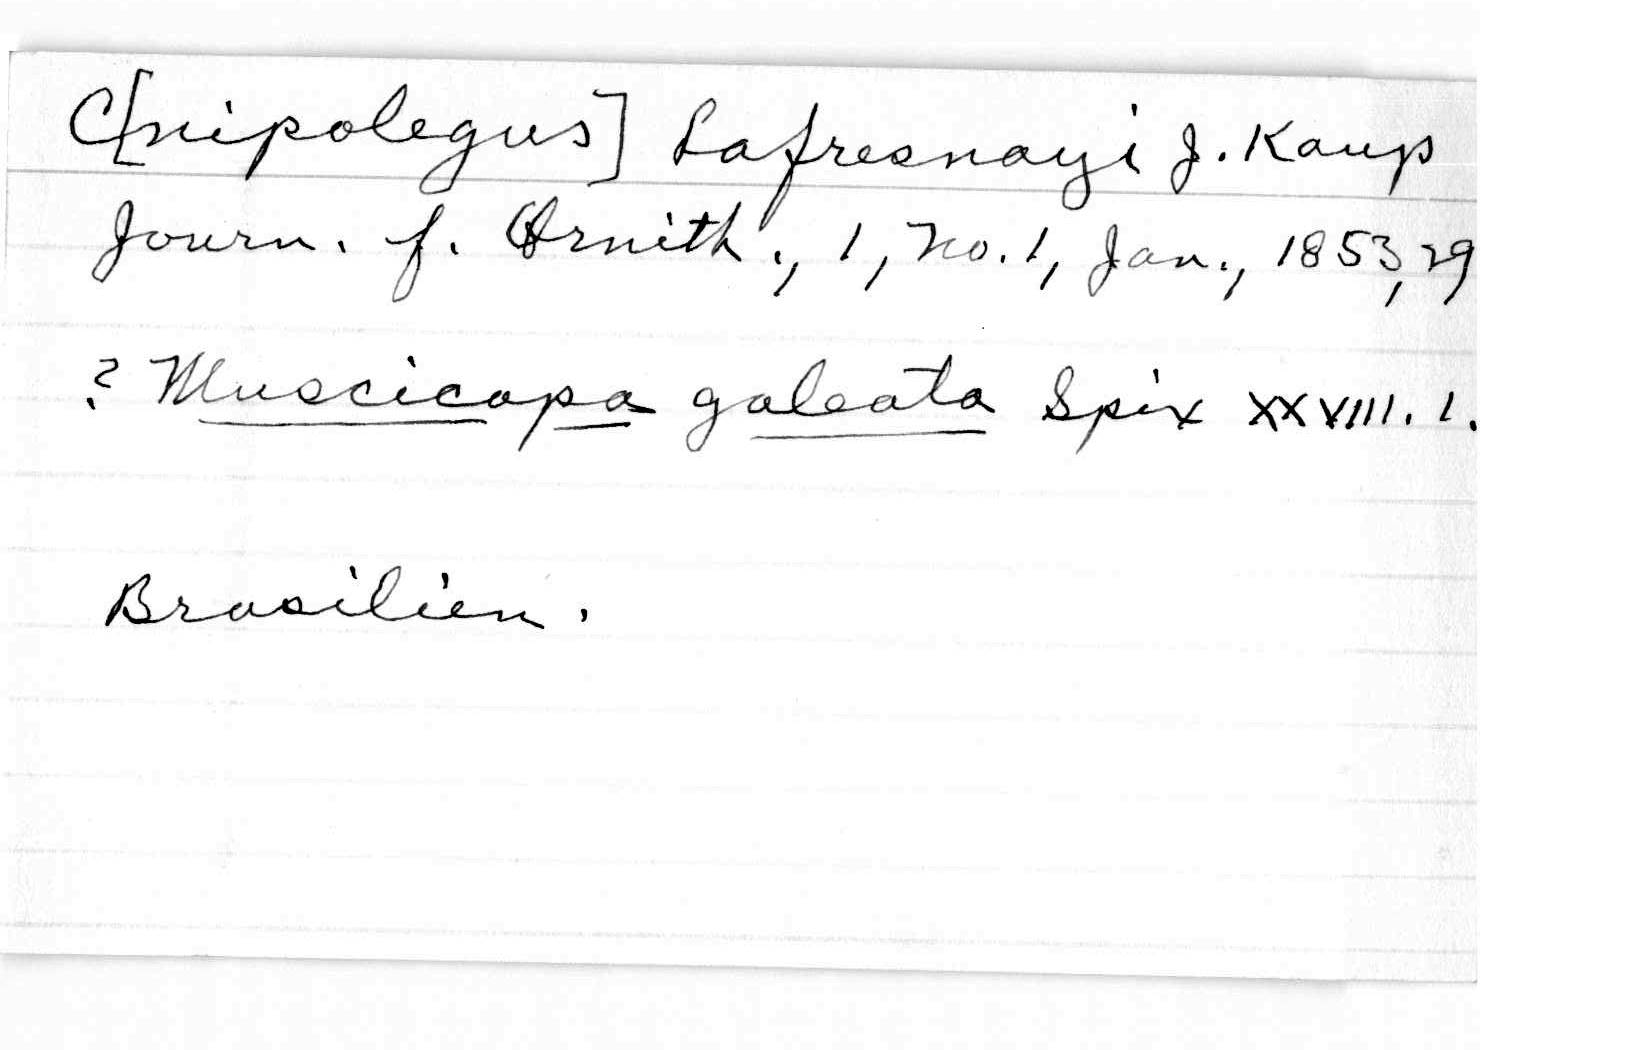 C[nipolegus] Lafresnayi J. Kaup
Journ. f. Ornith., 1, no. 1, Jan., 1853, 29
? Muscicapa galeata Spix XXVIII. 1.
Brasilien.